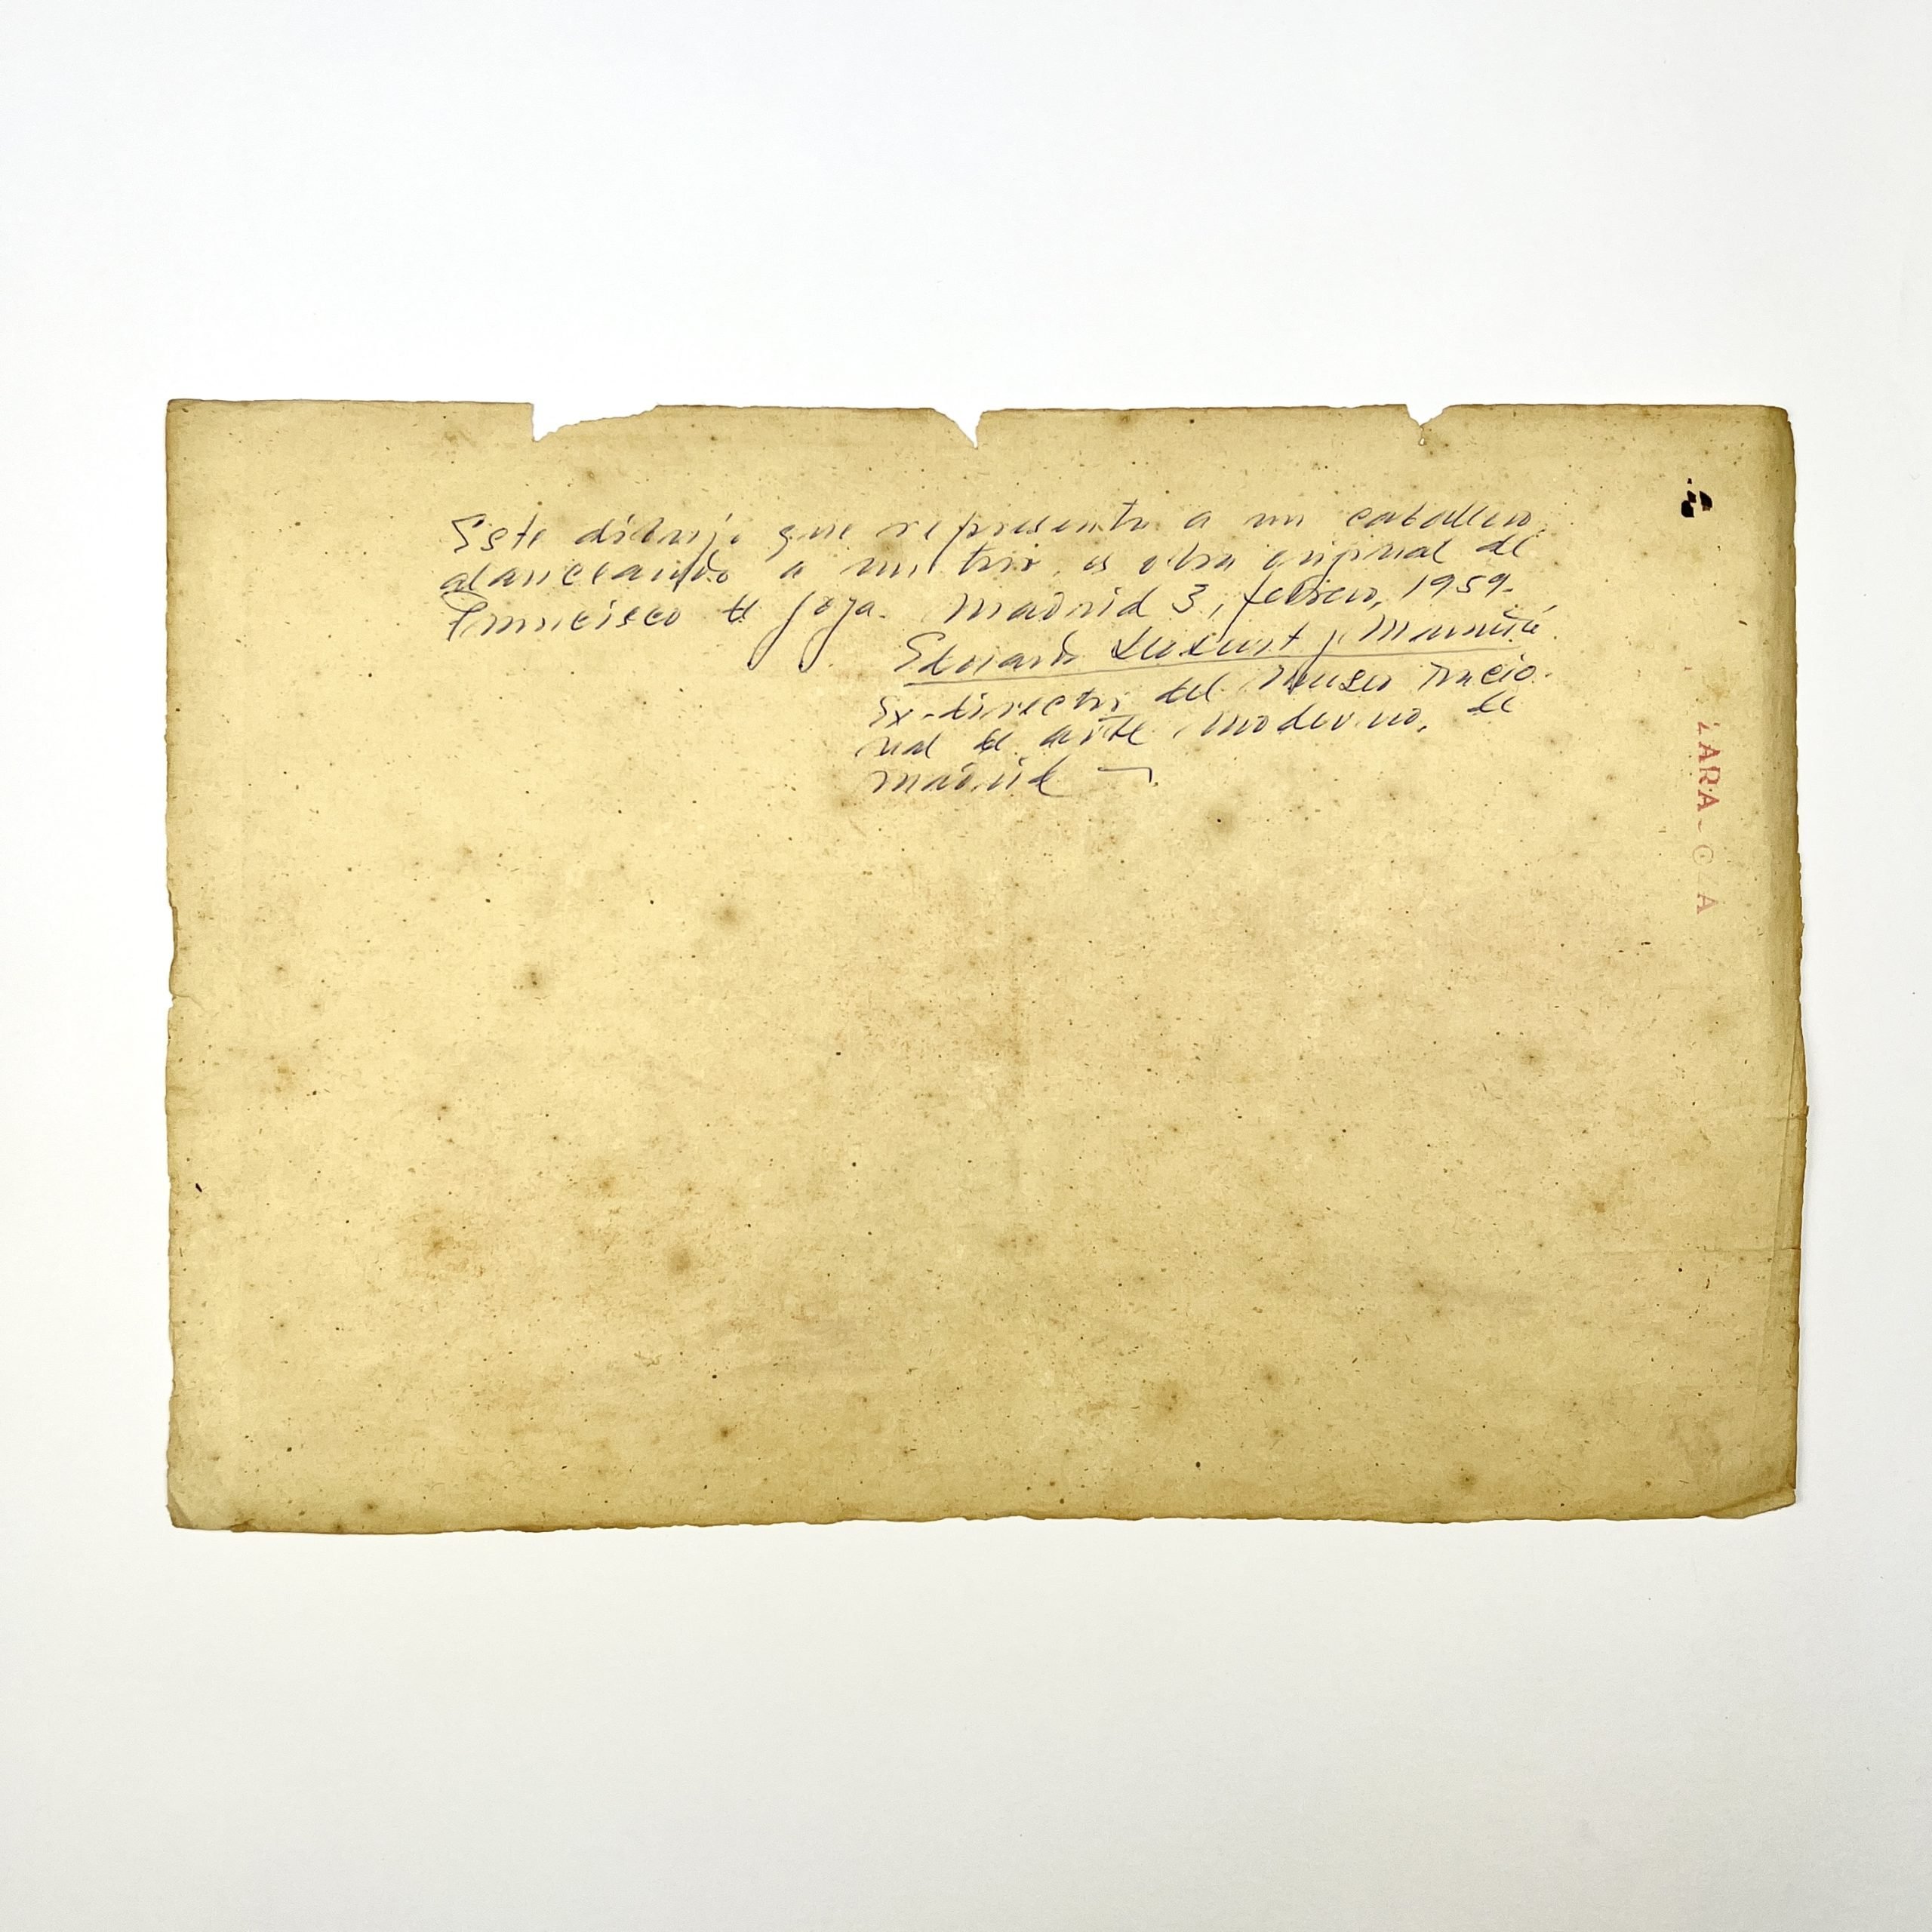 Este dibujo que representa a un caballero
alanceando a un toro, es obra original de
Francisco de Goya. Madrid 3, febrero, 1959.
Eduardo Llosent y Marañón
Ex-director del Museo Nacio-
nal de arte moderno, de
Madrid